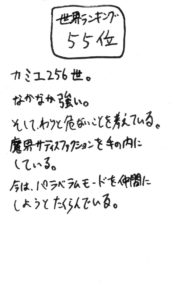 世界ランキング
55位
カミユ256世。
なかなか強い。
そして、わりと危ないことを考えている。
魔界サティスファクションを手の内に
している。
今は、パラベラムモードを仲間に
しようとたくらんでいる。